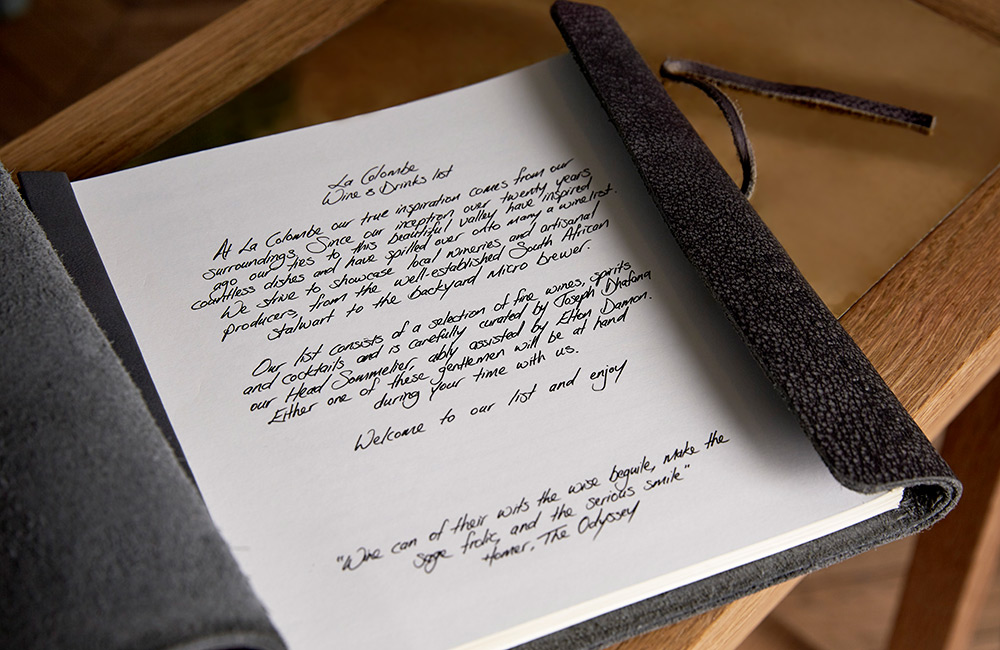 La Colombe
Wine & Drinks list
At La Colombe our true inspiration comes from our
surroundings. Since our inception over twenty years
ago our ties to this beautiful valley have inspired
countless dishes and have spilled over onto many a winelist.
We strive to showcase local wineries and artisanal
producers, from the well-established South African
stalwart to the backyard Micro brewer.
Our list consists of a selection of fine wines, spirits
and cocktails and is carefully curated by Joseph Dhafana
our Head Sommelier, ably assisted by Elton Damon.
Either one of these gentlemen will be at hand
during your time with us.
Welcome to our list and enjoy
"Wine can of their wits the wise beguile, make the
sage frolic, and the serious smile"
Homer, The Odyssey